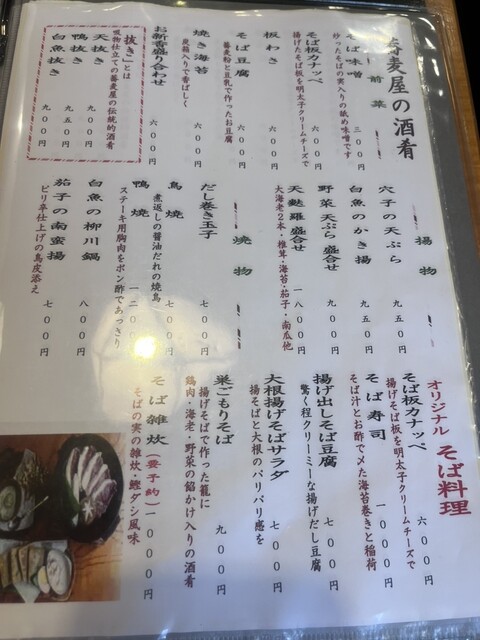 蕎麦屋の酒肴
前菜
そば味噌 三〇〇円
炒ったそばの実入りの舐め味噌です
そば板カナッペ 六〇〇円
揚げたそば板を明太子クリームチーズで
板わさ 六〇〇円
そば豆腐 六〇〇円
蕎麦粉と豆乳で作ったお豆腐
焼き海苔 六〇〇円
炭箱入りで香ばしく
お新香盛り合わせ 六〇〇円
「抜き」とは
吸物仕立ての蕎麦屋の伝統的酒肴
天抜き 九〇〇円
鴨抜き 九五〇円
白魚抜き 九〇〇円
揚物
穴子の天ぷら 九五〇円
白魚のかき揚 九五〇円
野菜天ぷら盛合せ 九〇〇円
天麩羅盛合せ 一八〇〇円
大海老2本・椎茸・海苔・茄子・南瓜他
焼物
だし巻き玉子 七〇〇円
鳥焼 七〇〇円
煮返しの醤油だれの焼鳥
鴨焼 一二〇〇円
ステーキ用胸肉をポン酢であっさり
白魚の柳川鍋 八〇〇円
茄子の南蛮揚 七〇〇円
ピリ辛仕上げの鳥皮添え
オリジナル そば料理
そば板カナッペ 六〇〇円
揚げそば板を明太子クリームチーズで
そば寿司 一〇〇〇円
そば汁とお酢で〆た海苔巻きと稲荷
揚げ出しそば豆腐 七〇〇円
驚く程クリーミーな揚げだし豆腐
大根揚げそばサラダ 七〇〇円
揚そばと大根のバリバリ感を
巣ごもりそば 九〇〇円
揚げそばで作った籠に
鶏肉・海老・野菜の餡かけ入りの酒肴
そば雑炊(要予約) 一〇〇〇円
そばの実の雑炊・鰹ダシ風味